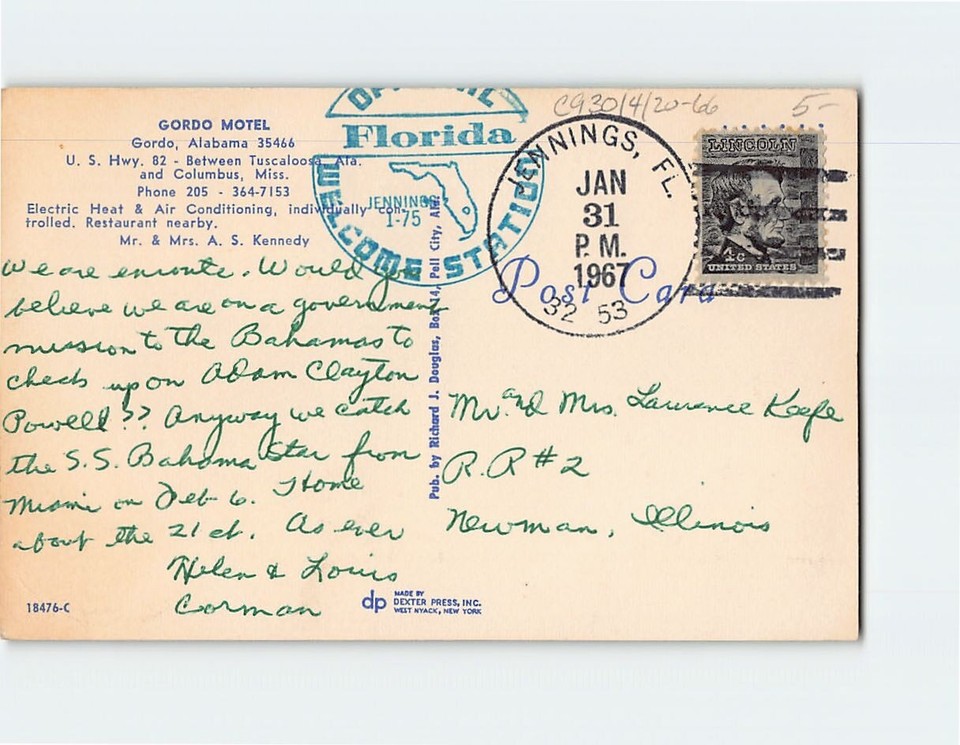 GORDO MOTEL
Gordo, Alabama 35466
U. S. Hwy. 82 - Between Tuscaloosa, Ala.
and Columbus, Miss.
Phone 205 - 364-7153
Electric Heat & Air Conditioning, individually con-
trolled. Restaurant nearby.
Mr. & Mrs. A. S. Kennedy
We are enroute. Would you
believe we are on a government
mission to the Bahamas to
check up on Adam Clayton
Powell?? Anyway we catch
the S.S. Bahama Star from
Miami on Feb 6. Home
about the 21 st. As ever
Helen & Louis
Corman
18476-C
OFFICIAL
Florida
WELCOME STATION
JENNINGS
I-75
Pub. by Richard J. Douglas, Box 14, Pell City, Ala.
dp MADE BY
DEXTER PRESS, INC.
WEST NYACK, NEW YORK
C930/4/20-66
5-
JENNINGS, FL.
JAN
31
P. M.
1967
32 53
LINCOLN
4c
UNITED STATES
Post Card
Mr. and Mrs. Lawrence Keefe
R.R #2
Newman, Illinois